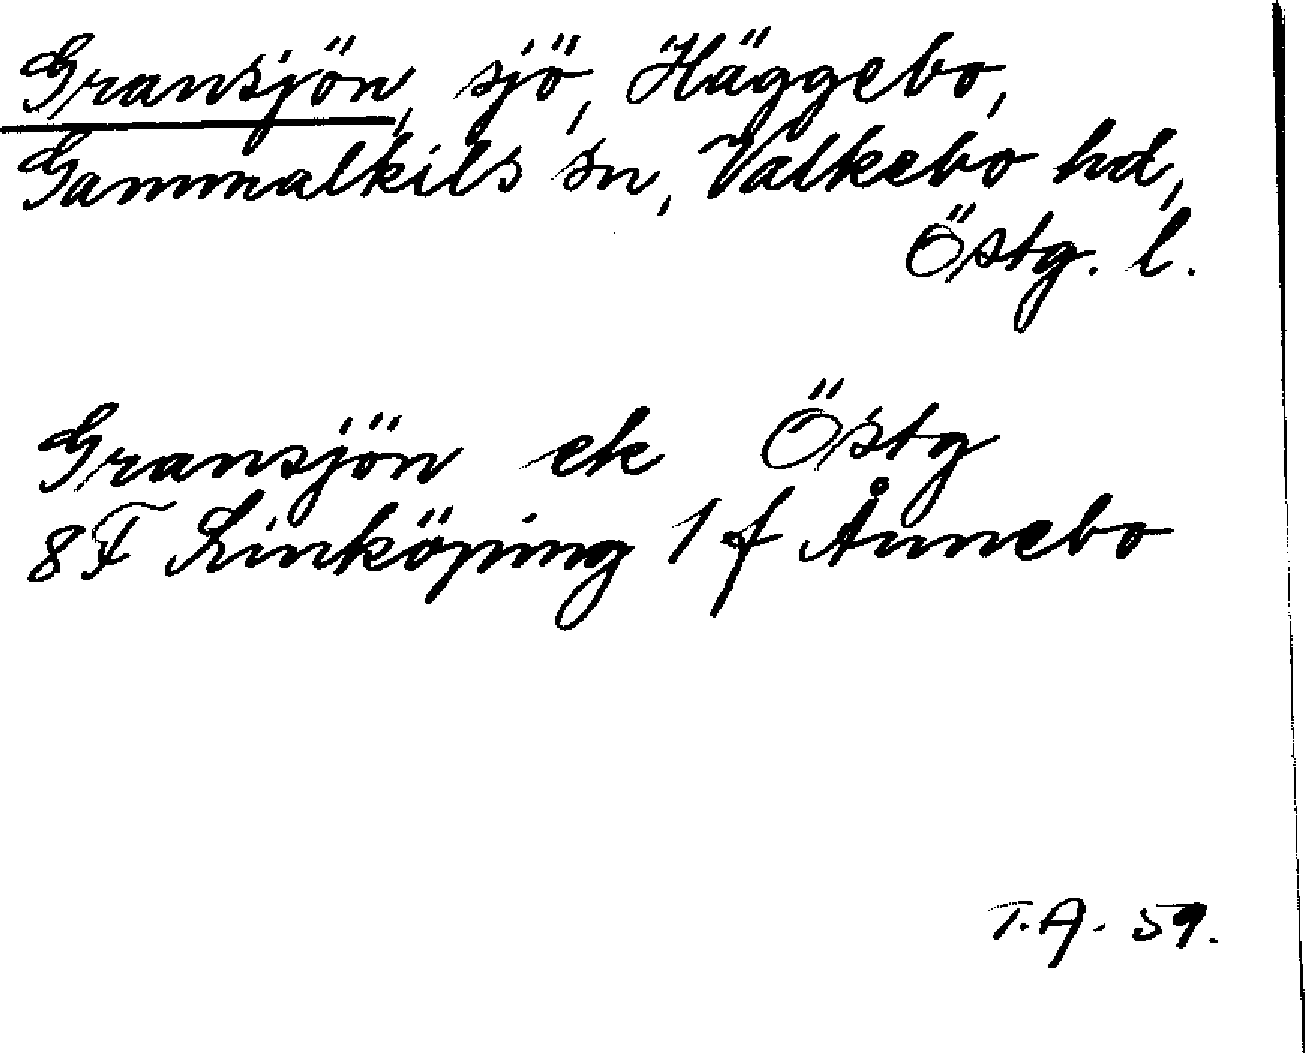 Gransjön, sjö, Häggebo,
Gammalkils sn, Valkebo hd,
Östg. l.
Gransjön ek Östg
8F Linköping 1 f Ånnebo
T.A. 59.